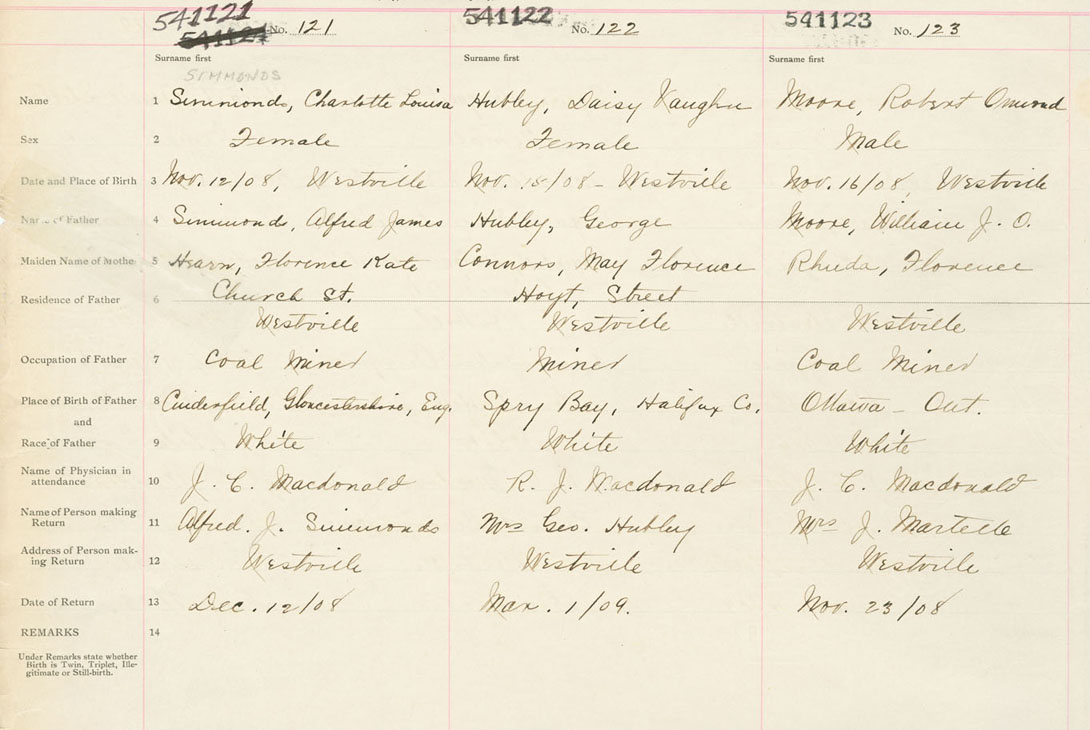 541121 No. 121 541122 No. 122 541123 No. 123
Surname first Surname first Surname first
SIMMONDS
Name 1 Simmonds, Charlotte Louisa Hubley, Daisy Vaughn Moore, Robert Ormond
Sex 2 Female Female Male
Date and Place of Birth 3 Nov. 12/08, Westville Nov. 15/08 - Westville Nov. 16/08, Westville
Name of Father 4 Simmonds, Alfred James Hubley, George Moore, William J. O.
Maiden Name of Mothe 5 Hearn, Florence Kate Connors, May Florence Rhuda, Florence
Residence of Father 6 Church St. Hoyt, Street
Westville Westville Westville
Occupation of Father 7 Coal Miner Miner Coal Miner
Place of Birth of Father 8 Cinderfield, Gloucestershire, Eng. Spry Bay, Halifax Co. Ottawa - Ont.
and
Race of Father 9 White White White
Name of Physician in
attendance 10 J. C. Macdonald R. J. Macdonald J. C. Macdonald
Name of Person making
Return 11 Alfred. J. Simmonds Mrs Geo. Hubley Mrs J. Martelle
Address of Person mak-
ing Return 12 Westville Westville Westville
Date of Return 13 Dec. 12/08 Mar. 1/09. Nov. 23/08
REMARKS 14
Under Remarks state whether
Birth is Twin, Triplet, Ille-
gitimate or Still-birth.